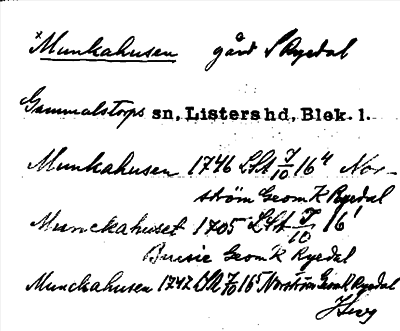 *Munkahusen gård S Ryedal
Gammalstorps sn, Listers hd, Blek. l.
Munkahusen 1746 LSA J/10 16⁴ Nor-
ström Geom K Ryedal
Munckahuset 1705 LSA J/10 16¹
Geom K Ryedal
Munckahusen 1747 LSA J/10 16⁵ Norström Geom K Ryedal